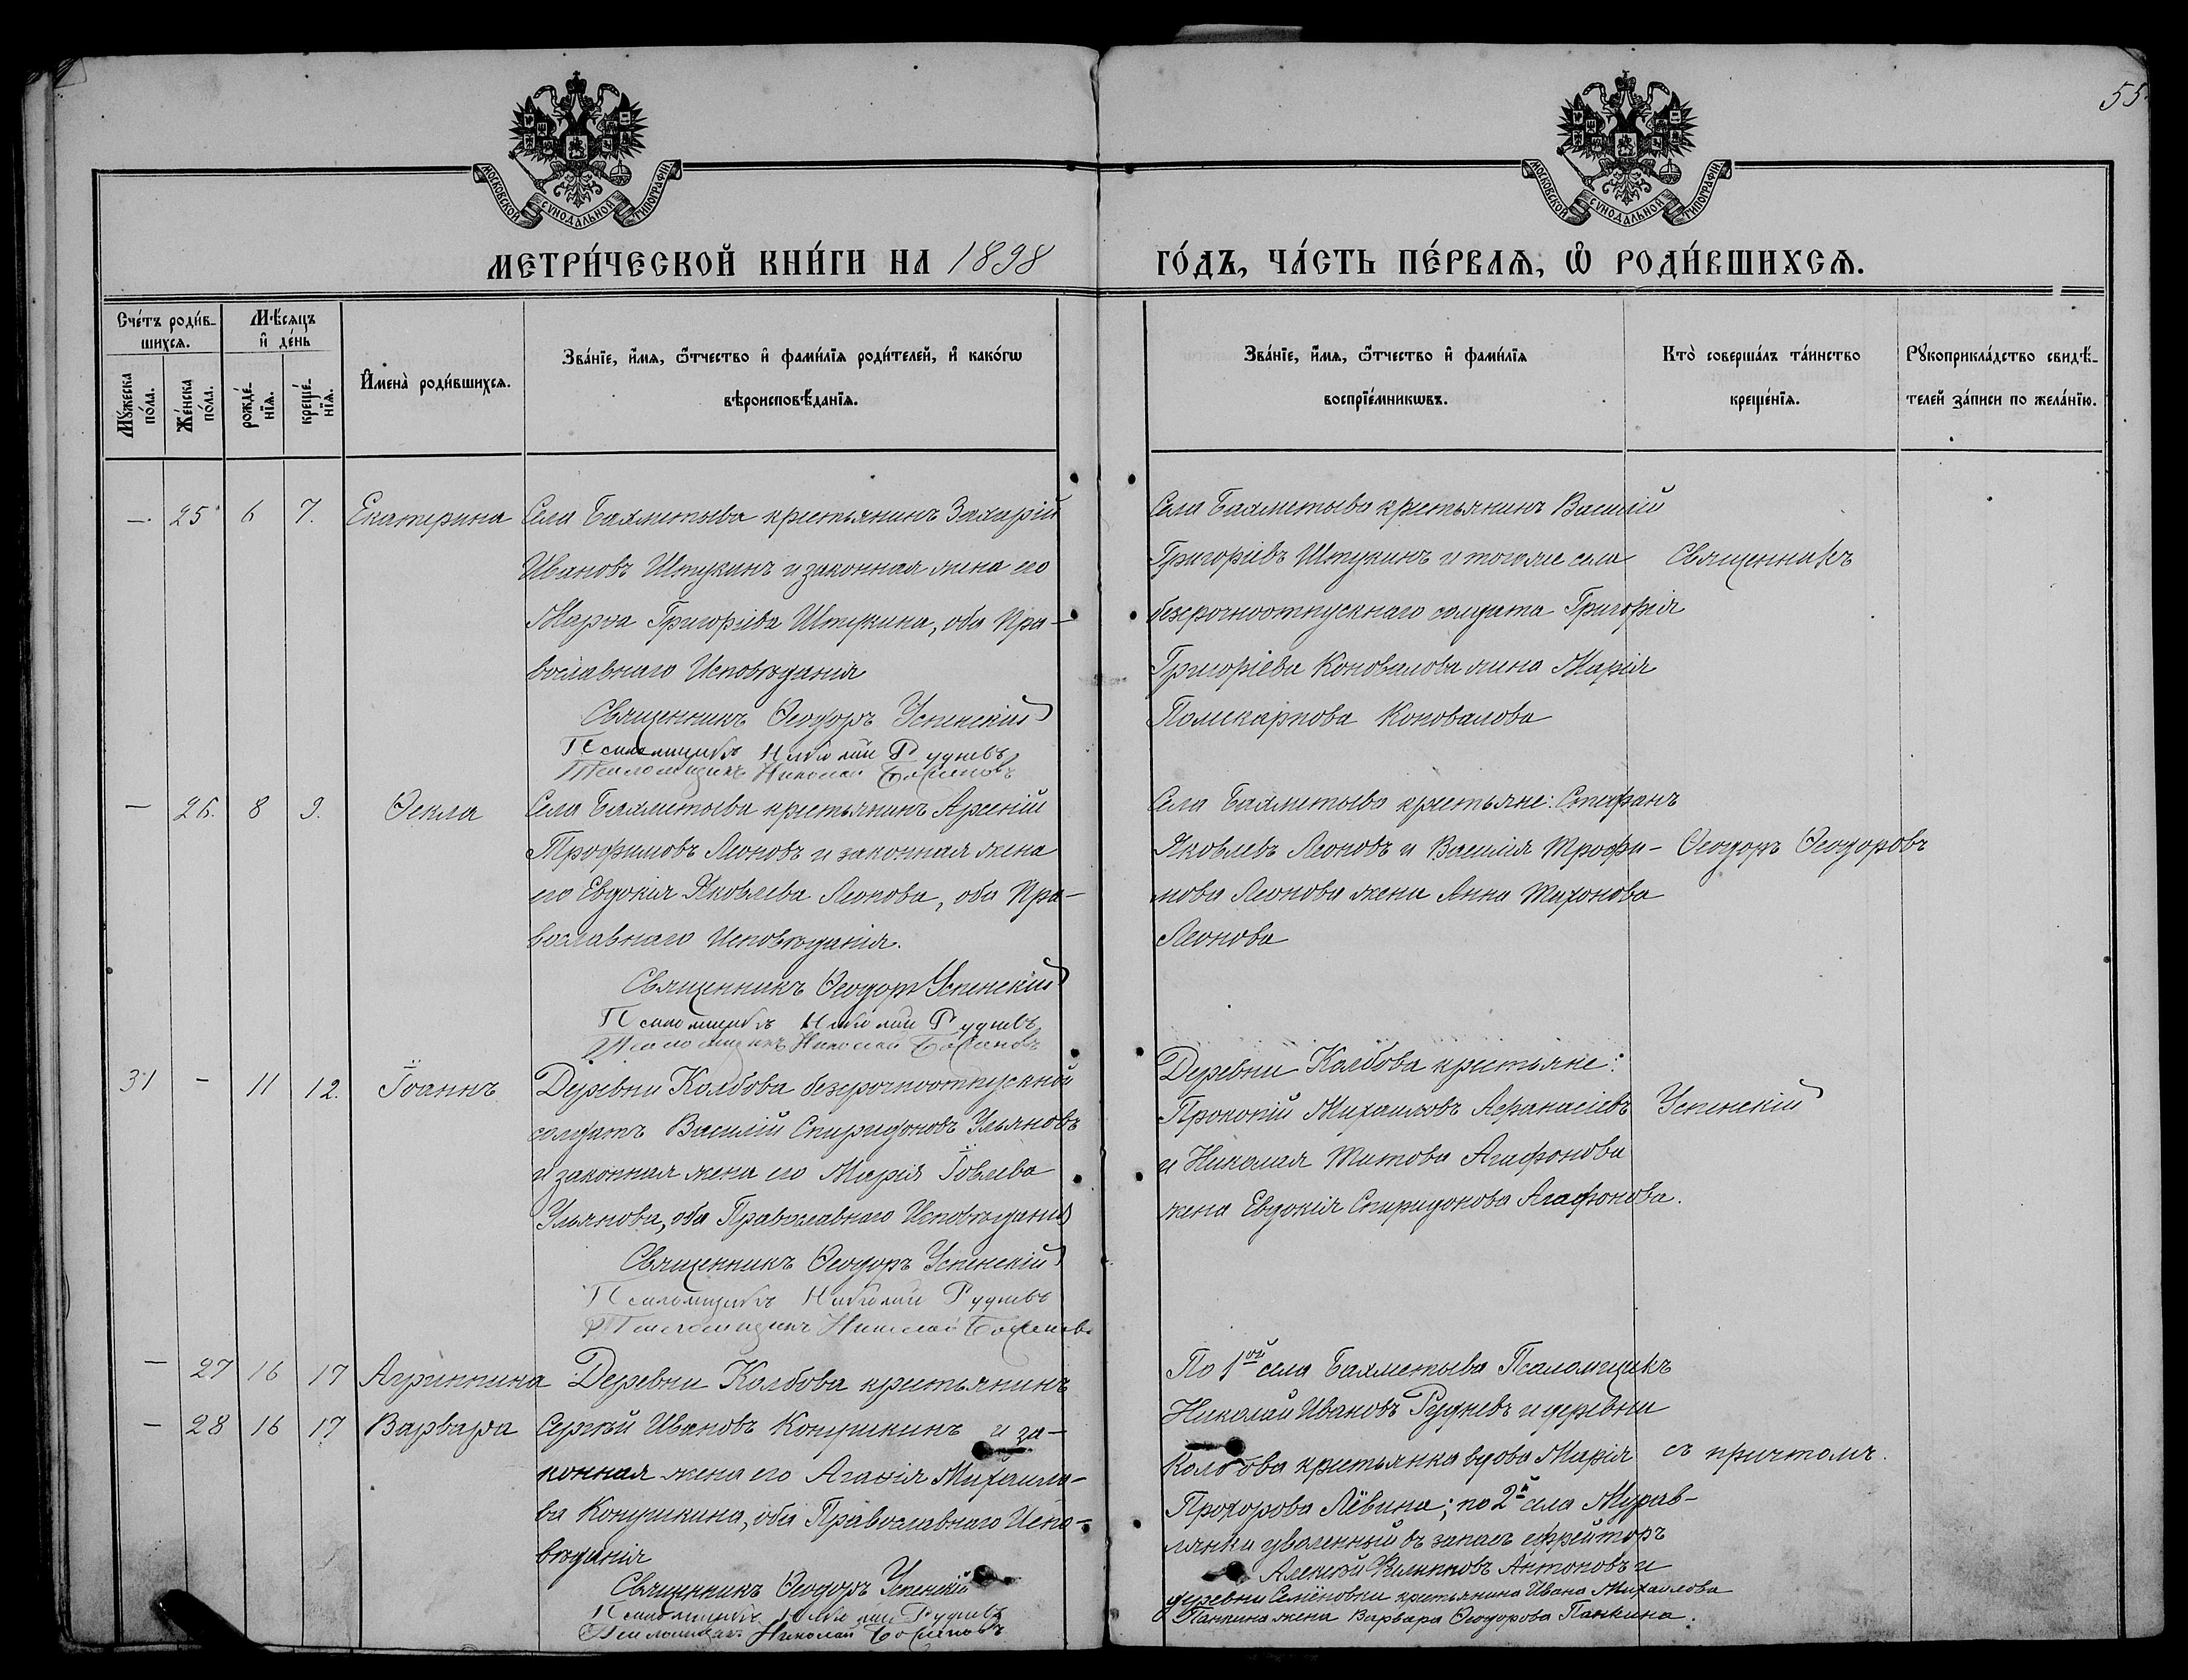 55
МОСКОВСКОЙ СУНОДАЛЬНОЙ ТИПОГРАФІИ
МОСКОВСКОЙ СУНОДАЛЬНОЙ ТИПОГРАФІИ
МЕТРИ́ЧЕСКОЙ КНИ́ГИ НА 1898 ГО́ДЪ, ЧА́СТЬ ПЕ́РВАѦ, Ѽ РОДИ́ВШИХСѦ.
Сче́тъ роди́в-
шихсѧ.
Мꙋ́жеска по́ла.
Же́нска по́ла.
Мѣ́сѧцъ
и҆ де́нь
рожде́-
нїѧ.
креще́-
нїѧ.
И҆мена̀ роди́вшихсѧ.
Зва́нїе, и҆́мѧ, ѻ҆́тчество и҆ фами́лїѧ роди́телей, и҆ како́гѡ
вѣроисповѣ́данїѧ.
Зва́нїе, и҆́мѧ, ѻ҆́тчество и҆ фами́лїѧ
воспрїе́мникѡвъ.
Кто̀ соверша́лъ та́инство
креще́нїѧ.
Рꙋкоприкла́дство свидѣ́-
телей за́писи по жела́нїю.
— 25 6 7. Екатерина Села Бахметьева крестьянинъ Захарій
Ивановъ Штукинъ и законная жена его
Марѳа Григоріева Штукина, оба Пра-
вославнаго Исповѣданія
Священникъ Ѳеодоръ Успенскій
Псаломщикъ Николай Рудневъ
Псаломщикъ Николай
Села Бахметьева крестьянинъ Василій
Григоріевъ Штукинъ и тогоже села
безсрочноотпускнаго солдата Григорія
Григоріева Коновалова жена Марія
Поликарпова Коновалова
Священникъ
— 26. 8 9. Ѳекла Села Бахметьева крестьянинъ Арсеній
Трофимовъ Леоновъ и законная жена
его Евдокія Яковлева Леонова, оба Пра-
вославнаго Исповѣданія.
Священникъ Ѳеодоръ Успенскій
Псаломщикъ Николай Рудневъ
Псаломщикъ Николай
Села Бахметьева крестьяне: Стефанъ
Яковлевъ Леоновъ и Василія Трофи-
мова Леонова жена Анна Тихонова
Леонова
Ѳеодоръ Ѳеодоровъ
31 — 11 12. Іоаннъ Деревни Колбова безсрочноотпускной
солдатъ Василій Спиридоновъ Ульяновъ
и законная жена его Марія Іовлева
Ульянова, оба Православнаго Исповѣданія
Священникъ Ѳеодоръ Успенскій
Псаломщикъ Николай Рудневъ
Псаломщикъ Николай
Деревни Колбова крестьяне:
Прокопій Михаиловъ Аѳанасіевъ
и Николая Титова Агафонова
жена Евдокія Спиридонова Агафонова.
Успенскій
— 27 16 17 Агриппина Деревни Колбова крестьянинъ
— 28 16 17 Варвара Сергѣй Ивановъ Конушкинъ и за-
конная жена его Агаѳія Михаило-
ва Конушкина, оба Православнаго Испо-
вѣданія
Священникъ Ѳеодоръ Успенскій
Псаломщикъ Николай Рудневъ
Псаломщикъ Николай
По 1ой села Бахметьева Псаломщикъ
Николай Ивановъ Рудневъ и деревни
Колбова крестьянка вдова Марія
Прохорова Лёвина; по 2й села Мурав-
лянки уволенный въ запасъ ефрейторъ
Алексѣй Филиповъ Антоновъ и
деревни Семёновки крестьянина Ивана Михаилова
Панкина жена Варвара Ѳеодорова Панкина.
съ причтомъ.